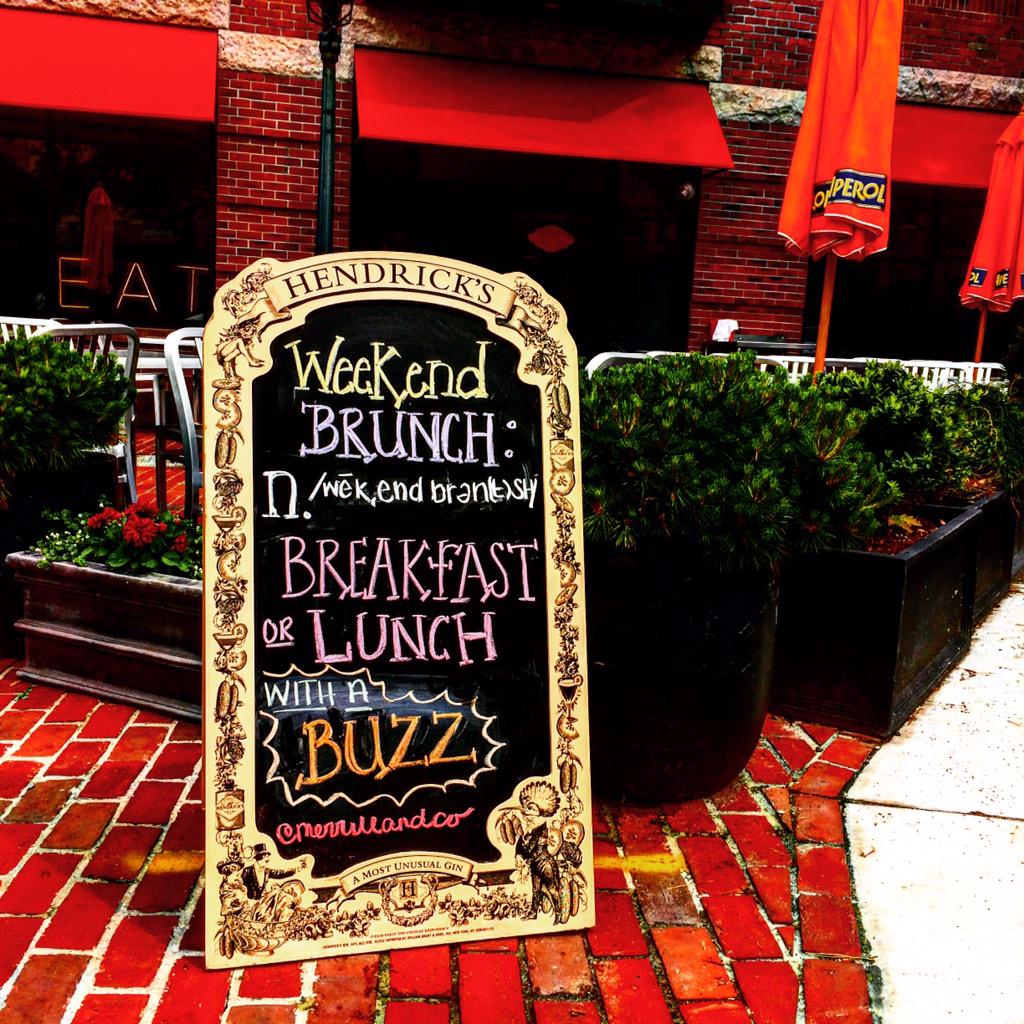 EAT
HENDRICK'S
Weekend
BRUNCH:
n.
BREAKFAST
OR LUNCH
WITH A
BUZZ
@merrillandco
A MOST UNUSUAL GIN
H
PEROL